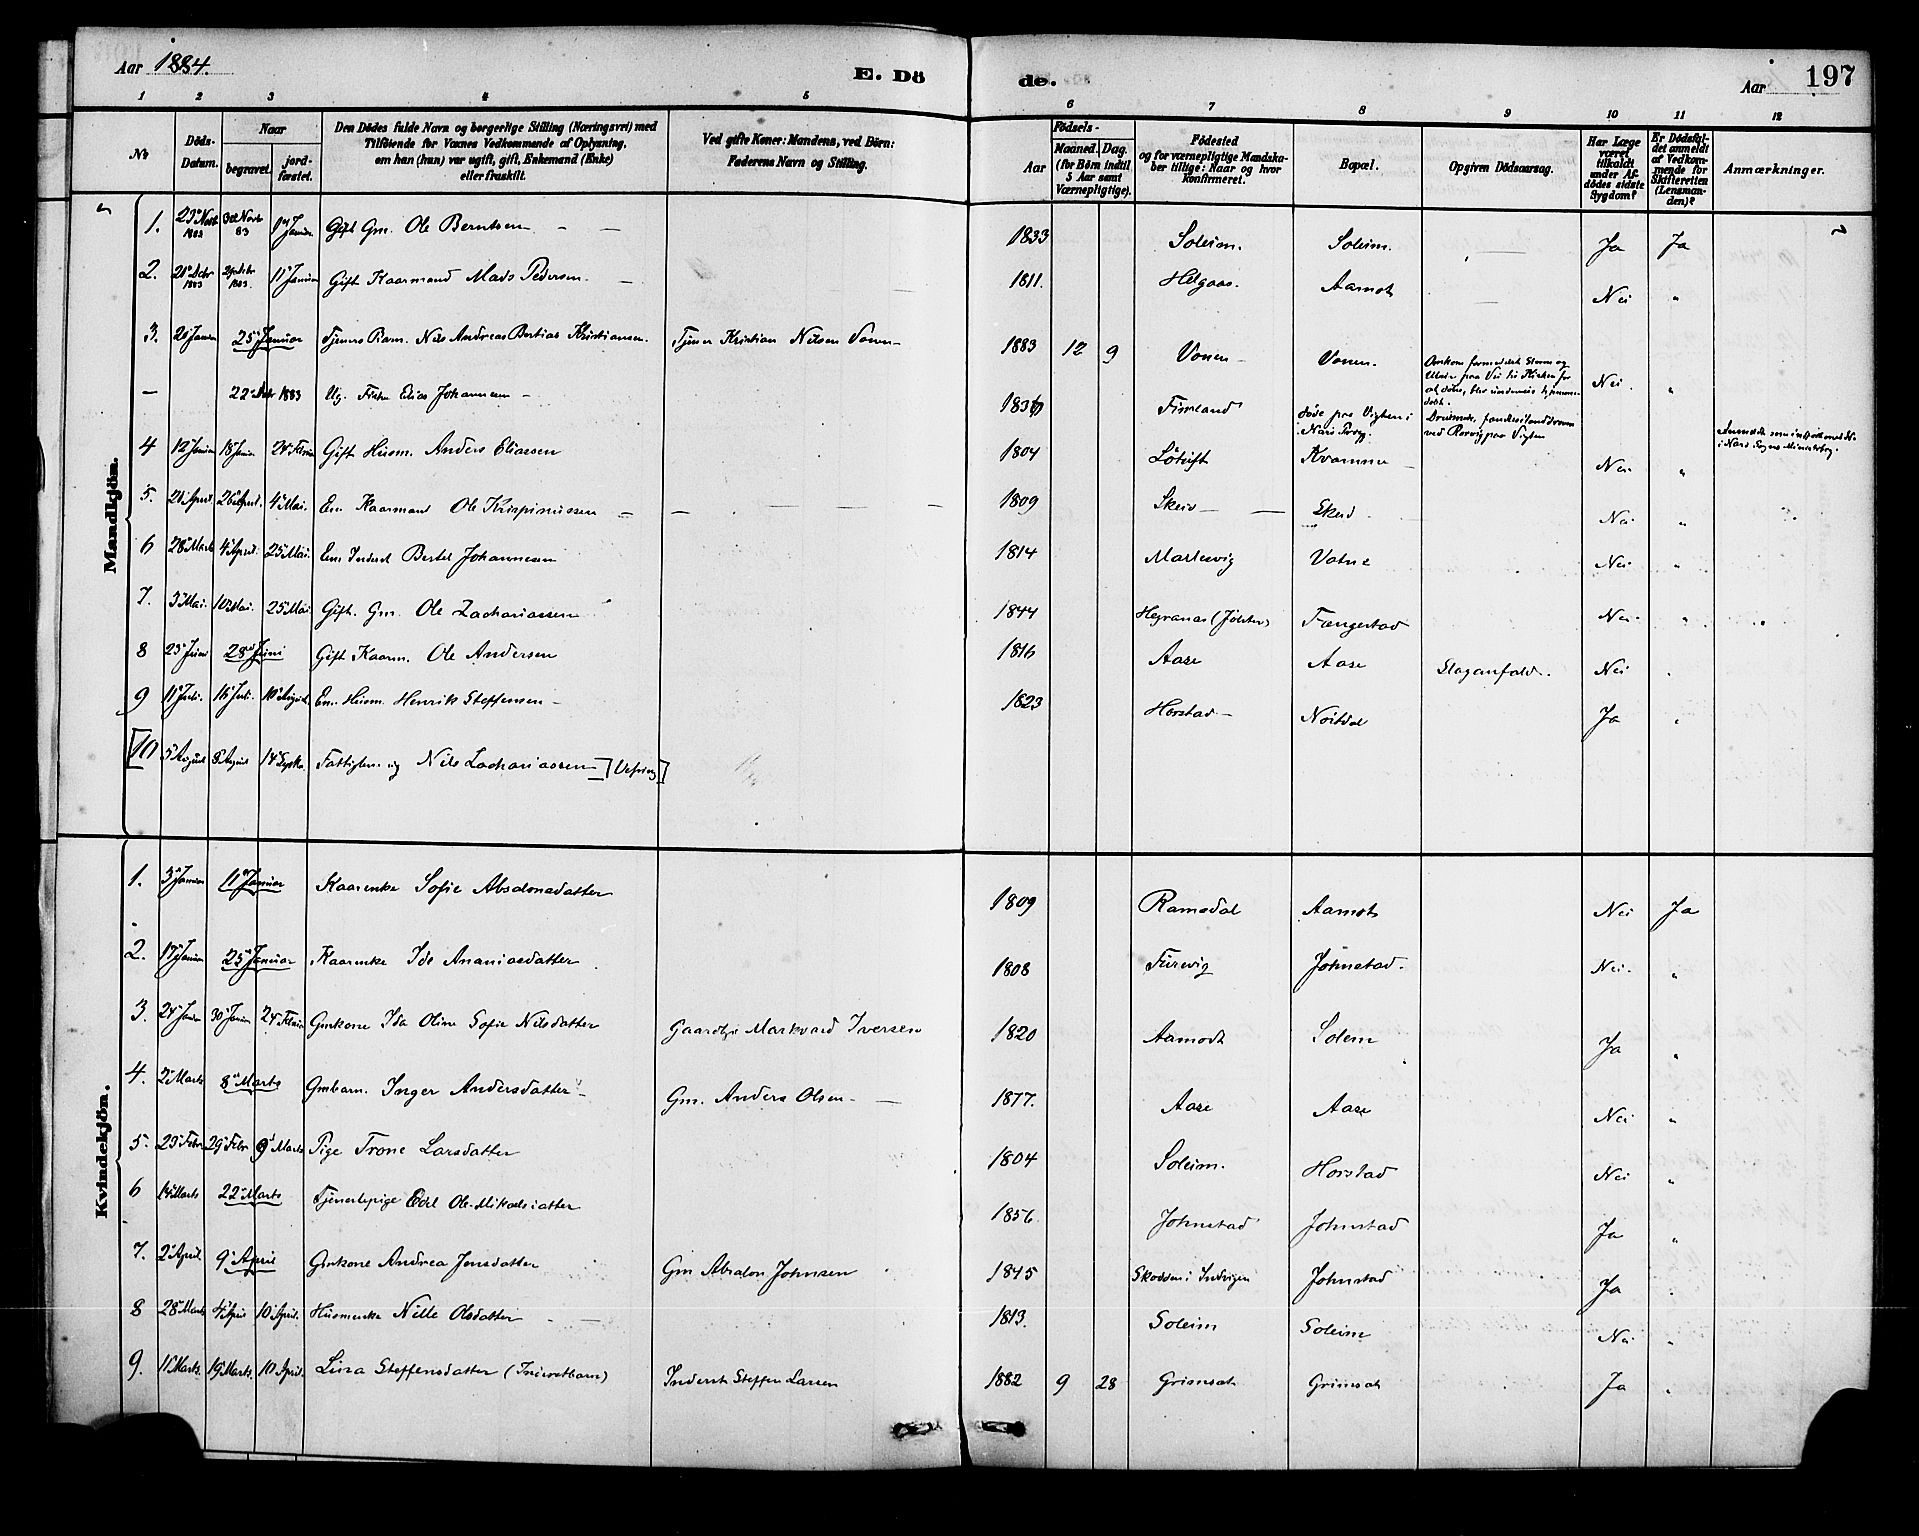 Aar 1884.
E. Döde.
Aar
197
1 2 3 4 5 6 7 8 9 10 11 12
No
Döds-Datum.
Naar
begravet.
jordfæstet.
Den Dödes fulde Navn og borgerlige Stilling (Næringsvei) med
Tilföiende for Voxnes Vedkommende af Oplysning,
om han (hun) var ugift, gift, Enkemand (Enke)
eller fraskilt.
Ved gifte Koner: Mandens, ved Börn:
Faderens Navn og Stilling.
Födsels-
Aar
Maaned. Dag.
(for Börn indtil
5 Aar samt
Værnepligtige).
Födested
og for værnepligtige Mandska-
ber tillige: Naar og hvor
konfirmeret.
Bopæl.
Opgiven Dödsaarsag.
Har Læge
været
tilkaldt
under Af-
dödes sidste
Sygdom?
Er Dödsfal-
det anmeldt
af Vedkom-
mende for
Skifteretten
(Lensman-
den)?
Anmærkninger.
Mandkjön.
1. 1883 83 Gift Gm. Ole Berntsen 1833 Soleim. Soleim. Ja Ja
2. 21 Debr 1883 1883. 11 Januar Gift Kaarmand Mads Pedersen 1811. Helgaas. Aamot Nei "
3. 25 Januar Nils Andreas Bertias Kristiansen. Tjener Kristian Nilsen Vonen 1883 12 9 Vonen Vonen. Nei. "
– 22 1883 Ug. Elias Johannesen Fimland döde paa Vigten i
4 12 Januar 18 Januar Gift Husm. Anders Eliassen 1804 Kvamme Nei "
5. 21 April. 26 April. 4 Mai. Em. Kaarmand Ole Krispinussen 1809 Skeid Skeid Nei "
6 28 Marts 4 April. 25 Mai. Em. Inderst Bertel Johannesen 1814 Marlesvig Vatne Nei "
7. 3 Mai. 10 Mai. 25 Mai Gift. Gm. Ole Zachariassen 1844 Hegranæs (Jölster) Fængestad Nei "
8 23 Juni 28 Juni Gift Kaarm. Ole Andersen 1816 Aase Aase Slaganfald. Nei "
9 11 Juli. 16 Juli. 10 August. Em. Husm. Henrik Steffensen 1823 Horstad Nöitdal Ja "
[10 5 August 8 August 14 Fattiglem ug Nils Zachariassen] [Vefring]
Kvindekjön.
1. 3 Januar 11 Januar Kaarenke Sofie Absalonsdatter 1809 Ramsdal Aamot Nei Ja
2. 17 Januar 25 Januar Kaarenke Ida Ananiasdatter 1808 Furevig Johnstad. Nei. "
3. 24 Januar 30 Januar 24 Februar Gmkone Ida Oline Sofie Nilsdatter Markvard Iversen 1820 Aamodt Soleim Ja "
4. 2 Marts 8 Marts Gmbarn. Inger Andersdatter Gm. Anders Olsen 1877. Aase Aase Nei "
5. 23 Febr 29 Febr 9 Marts Pige Trone Larsdatter 1804 Soleim. Horstad Nei "
6 14 Marts 22 Marts Tjenestepige Edel Ole-Mikalsdatter 1856. Johnstad Johnstad Ja "
7. 2 April. 9 April Gmkone Andrea Jensdatter Gm Absalon Johnsen 1845 Skodden i Indvigen Johnstad Ja "
8 28 Marts 4 April 10 April. Husmenke Nille Olsdatter 1813. Soleim Soleim Nei "
9. 11 Marts. 19 Marts. 10 April. Lina Steffensdatter (Inderstbarn) Inderst Steffen Larsen 1882 9 28 Grimset Grimset Ja "